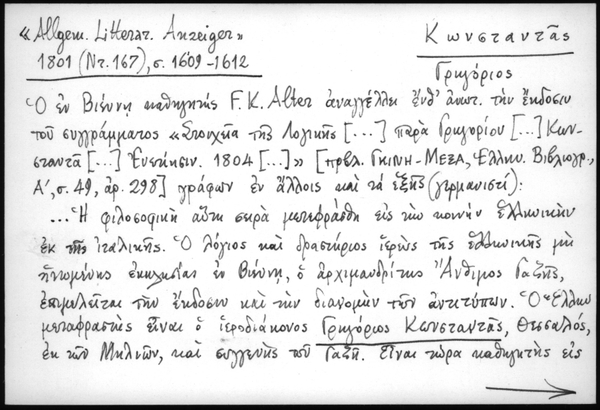 «Allgem. Litterar. Anzeiger»
1801 (Nr. 167), σ. 1609-1612
Κωνσταντᾶς
Γρηγόριος
Ὁ ἐν Βιέννῃ καθηγητὴς F. K. Alter ἀναγγέλλει ἔνθ' ἀνωτ. τὴν ἔκδοσιν
τοῦ συγγράμματος «Στοιχεῖα τῆς Λογικῆς [...] παρὰ Γρηγορίου [...] Κων-
σταντᾶ [...] Ἐνετίησιν. 1804 [...]» [πρβλ. ΓΚΙΝΗ-ΜΕΞΑ, Ἑλλην. Βιβλιογρ.,
Α', σ. 49, ἀρ. 298] γράφων ἐν ἄλλοις καὶ τὰ ἑξῆς (γερμανιστί):
...Ἡ φιλοσοφικὴ αὕτη σειρὰ μετεφράσθη εἰς τὴν κοινὴν ἑλληνικὴν
ἐκ τῆς ἰταλικῆς. Ὁ λόγιος καὶ δραστήριος ἱερεὺς τῆς ἑλληνικῆς μὴ
ἡνωμένης ἐκκλησίας ἐν Βιέννῃ, ὁ ἀρχιμανδρίτης Ἄνθιμος Γαζῆς,
ἐπιμελεῖται τὴν ἔκδοσιν καὶ τὴν διανομὴν τῶν ἀντιτύπων. Ὁ Ἕλλην
μεταφραστὴς εἶναι ὁ ἱεροδιάκονος Γρηγόριος Κωνσταντᾶς, Θεσσαλός,
ἐκ τῶν Μηλιῶν, καὶ συγγενὴς τοῦ Γαζῆ. Εἶναι τώρα καθηγητὴς εἰς